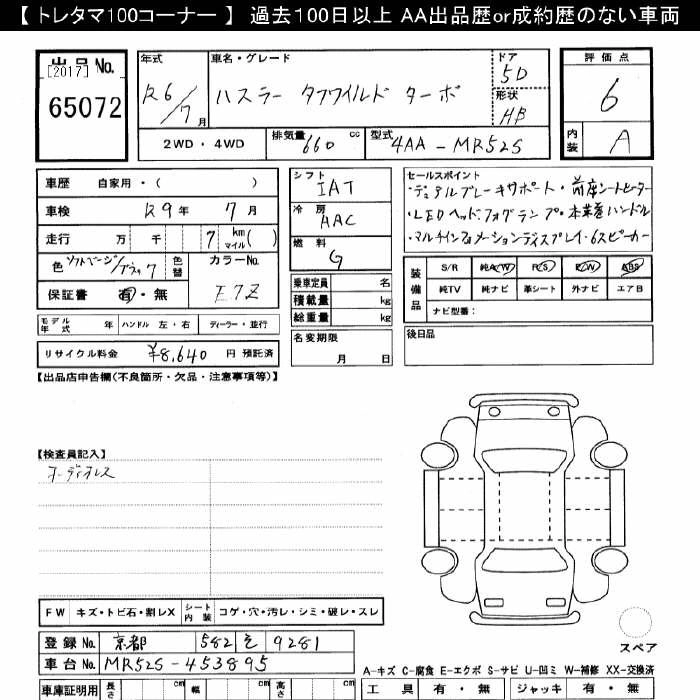 【 トレタマ100コーナー 】 過去100日以上 AA出品歴or成約歴のない車両
出品 No.
[2017]
65072
年式
R6/7月
車名・グレード
ハスラー タフワイルド ターボ
ドア
5D
形状
HB
評価点
6
内装
A
2WD・4WD
排気量 660 cc
型式 4AA-MR52S
車歴 自家用・( )
車検 R9年 7月
走行 万 千 7 km マイル ( )
色 ソフトベージュ/ブラック
色替
カラーNo.
E7Z
保証書 有・無
シフト
IAT
冷房
AAC
燃料
G
乗車定員 名
積載量 kg
総重量 kg
名変期限
月 日
セールスポイント
・デュアルブレーキサポート・前席シートヒーター
・LEDヘッド,フォグランプ・本革巻ハンドル
・マルチインフォメーションディスプレイ・6スピーカー
装備品
S/R 純A/W P/S P/W ABS
純TV 純ナビ 革シート 外ナビ エアB
ナビ型番:
モデル年式 年 ハンドル 左・右 ディーラー・並行
リサイクル料金 ¥8,640 円 預託済
後日品
【出品店申告欄(不良箇所・欠品・注意事項等)】
【検査員記入】
オーディオレス
FW キズ・トビ石・割レX
シート内装 コゲ・穴・汚レ・シミ・破レ・スレ
登録No. 京都 582 を 9281
車台No. MR52S-453895
スペア
A-キズ C-腐食 E-エクボ S-サビ U-凹ミ W-補修 XX-交換済
車庫証明用 長さ cm 幅 cm 高さ cm
工具 有・無 ジャッキ 有・無